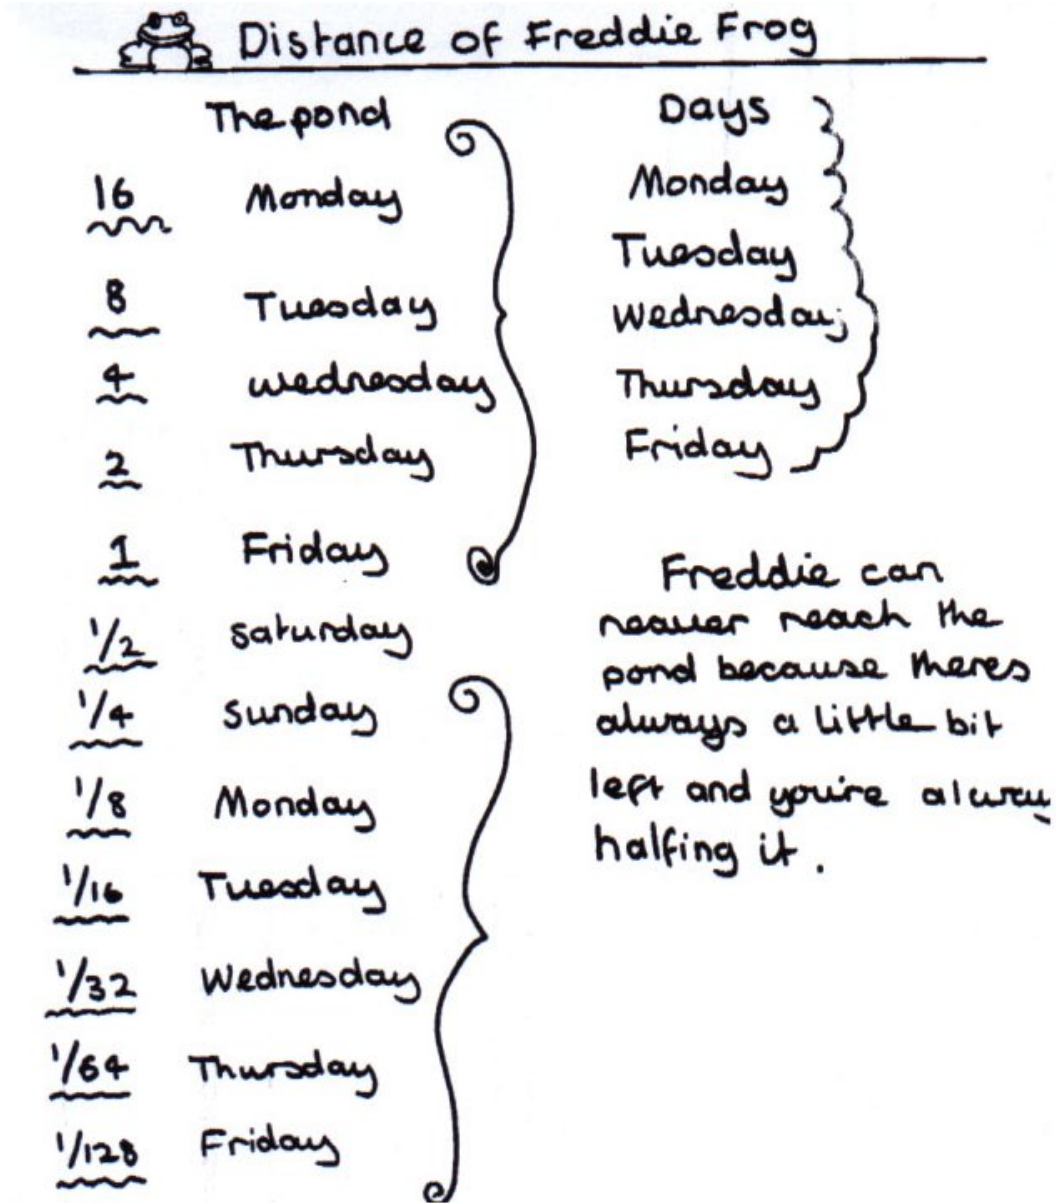 Distance of Freddie Frog
The pond
16 Monday
8 Tuesday
4 wednesday
2 Thursday
1 Friday
1/2 saturday
1/4 sunday
1/8 Monday
1/16 Tuesday
1/32 Wednesday
1/64 Thursday
1/128 Friday
Days
Monday
Tuesday
Wednesday
Thursday
Friday
Freddie can
neauer reach the
pond because theres
always a little bit
left and you're alway
halfing it.